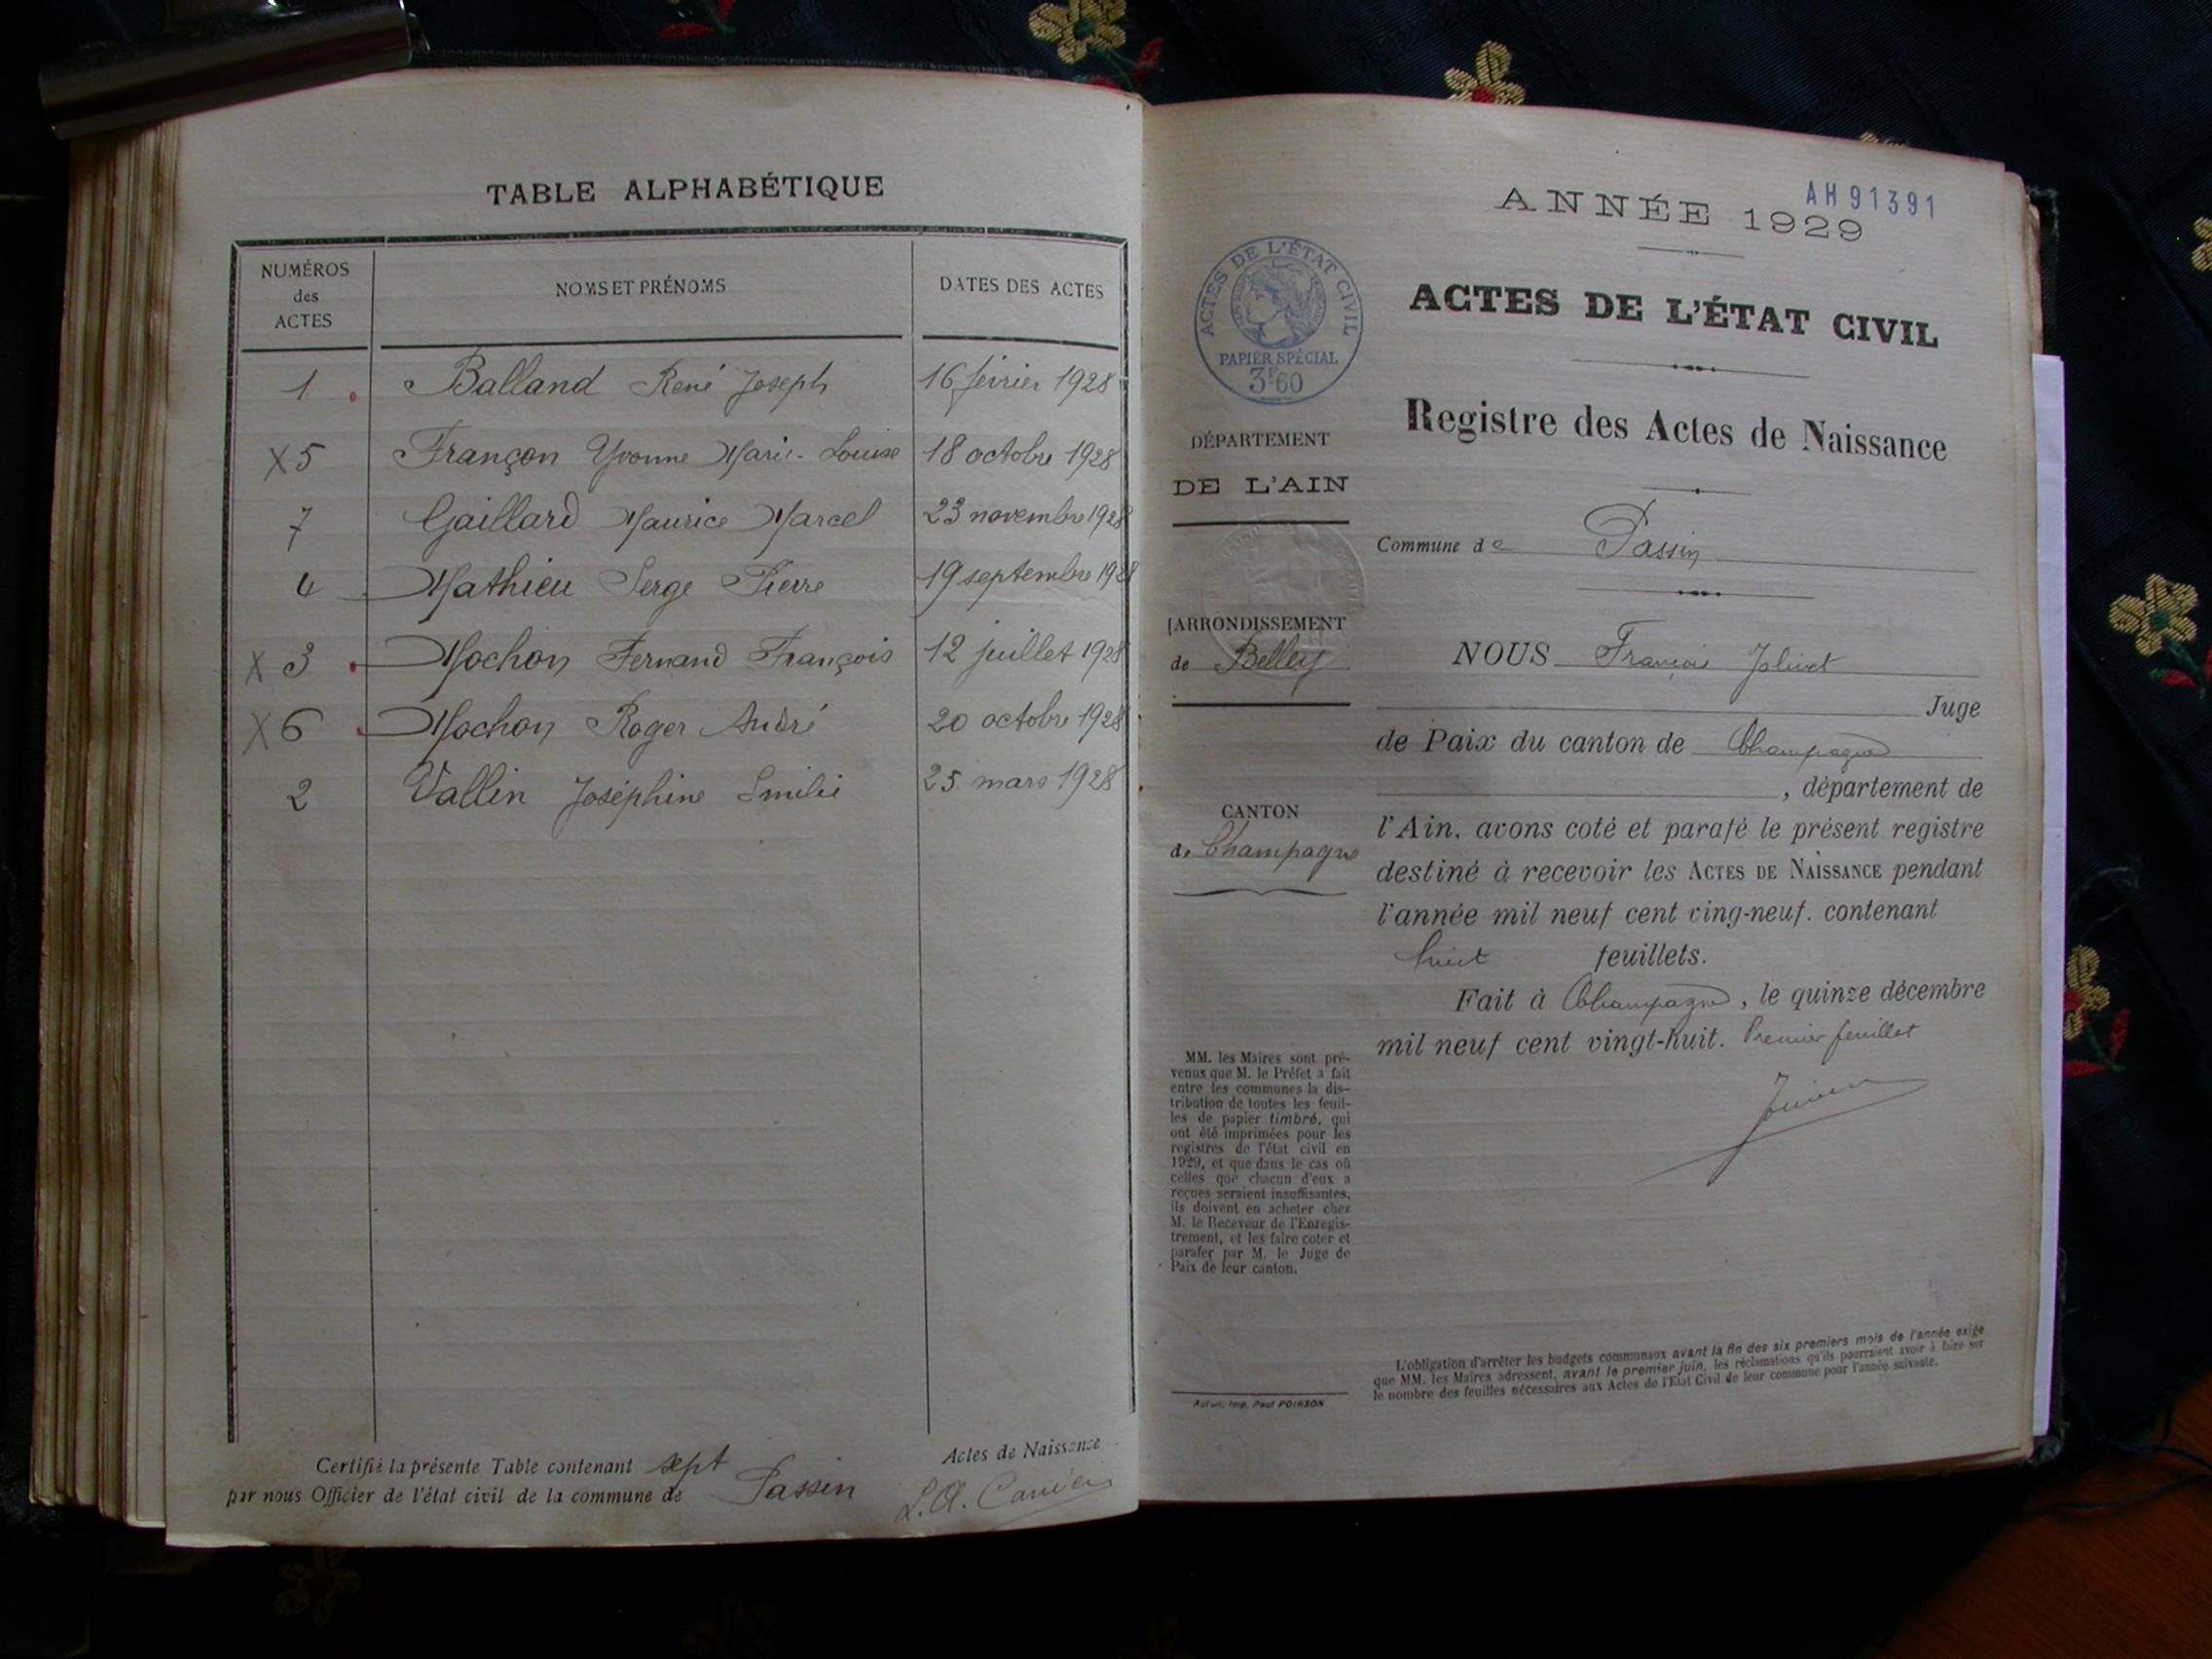 TABLE ALPHABÉTIQUE
NUMÉROS
des
ACTES
NOMS ET PRÉNOMS
DATES DES ACTES
1 Balland René Joseph 16 février 1928
X 5 Françon Yvonne Marie-Louise 18 octobre 1928
7 Gaillard Maurice Marcel 23 novembre 1928
4 Mathieu Serge Pierre 19 septembre 1928
X 3 Mochon Fernand François 12 juillet 1928
X 6 Mochon Roger André 20 octobre 1928
2 Vallin Joséphine Emilie 25 mars 1928
Certifié la présente Table contenant sept Actes de Naissance
par nous Officier de l'état civil de la commune de Passin
AH91391
ANNÉE 1929
ACTES DE L'ÉTAT CIVIL
PAPIER SPÉCIAL
3F60
ACTES DE L'ÉTAT CIVIL
Registre des Actes de Naissance
DÉPARTEMENT
DE L'AIN
Commune de Passin
ARRONDISSEMENT
de Belley
CANTON
de Champagne
NOUS François Jolivet
Juge
de Paix du canton de Champagne
, département de
l'Ain, avons coté et parafé le présent registre
destiné à recevoir les ACTES DE NAISSANCE pendant
l'année mil neuf cent ving-neuf. contenant
huit feuillets.
Fait à Champagne, le quinze décembre
mil neuf cent vingt-huit. Premier feuillet
MM. les Maires sont pré-
venus que M. le Préfet a fait
entre les communes la dis-
tribution de toutes les feuil-
les de papier timbré, qui
ont été imprimées pour les
registres de l'état civil en
1929, et que dans le cas où
celles que chacun d'eux a
reçues seraient insuffisantes,
ils doivent en acheter chez
M. le Receveur de l'Enregis-
trement, et les faire coter et
parafer par M. le Juge de
Paix de leur canton.
L'obligation d'arrêter les budgets communaux avant la fin des six premiers mois de l'année exige
que MM. les Maires adressent, avant le premier juin, les réclamations qu'ils pourraient avoir à faire sur
le nombre des feuilles nécessaires aux Actes de l'Etat Civil de leur commune pour l'année suivante.
Autun, Imp. Paul POIRSON